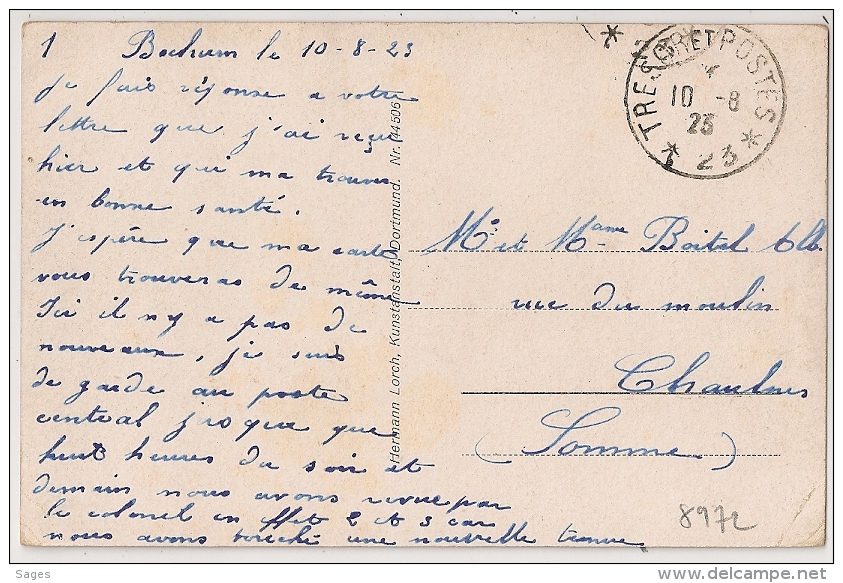 1 Bochum le 10-8-23
Je fais réponse a votre
lettre que j'ai reçue
hier et qui ma trouver
en bonne santé.
J'espère que ma carte
vous trouveras de même
Ici il n'y a pas de
nouveaux, je suis
de garde au poste
central jusque que
huit heures du soir et
demain nous avons revue par
le colonel en effet 2 et 3 car
nous avons touché une nouvelle tenue
Hermann Lorch, Kunstanstalt, Dortmund. Nr. 44506
TRESOR ET POSTES
10 -8
23
* 23 *
Mr et Mame Boitel Alb.
rue du moulin
Chaulnes
(Somme)
8972
Sages
delcampe.net